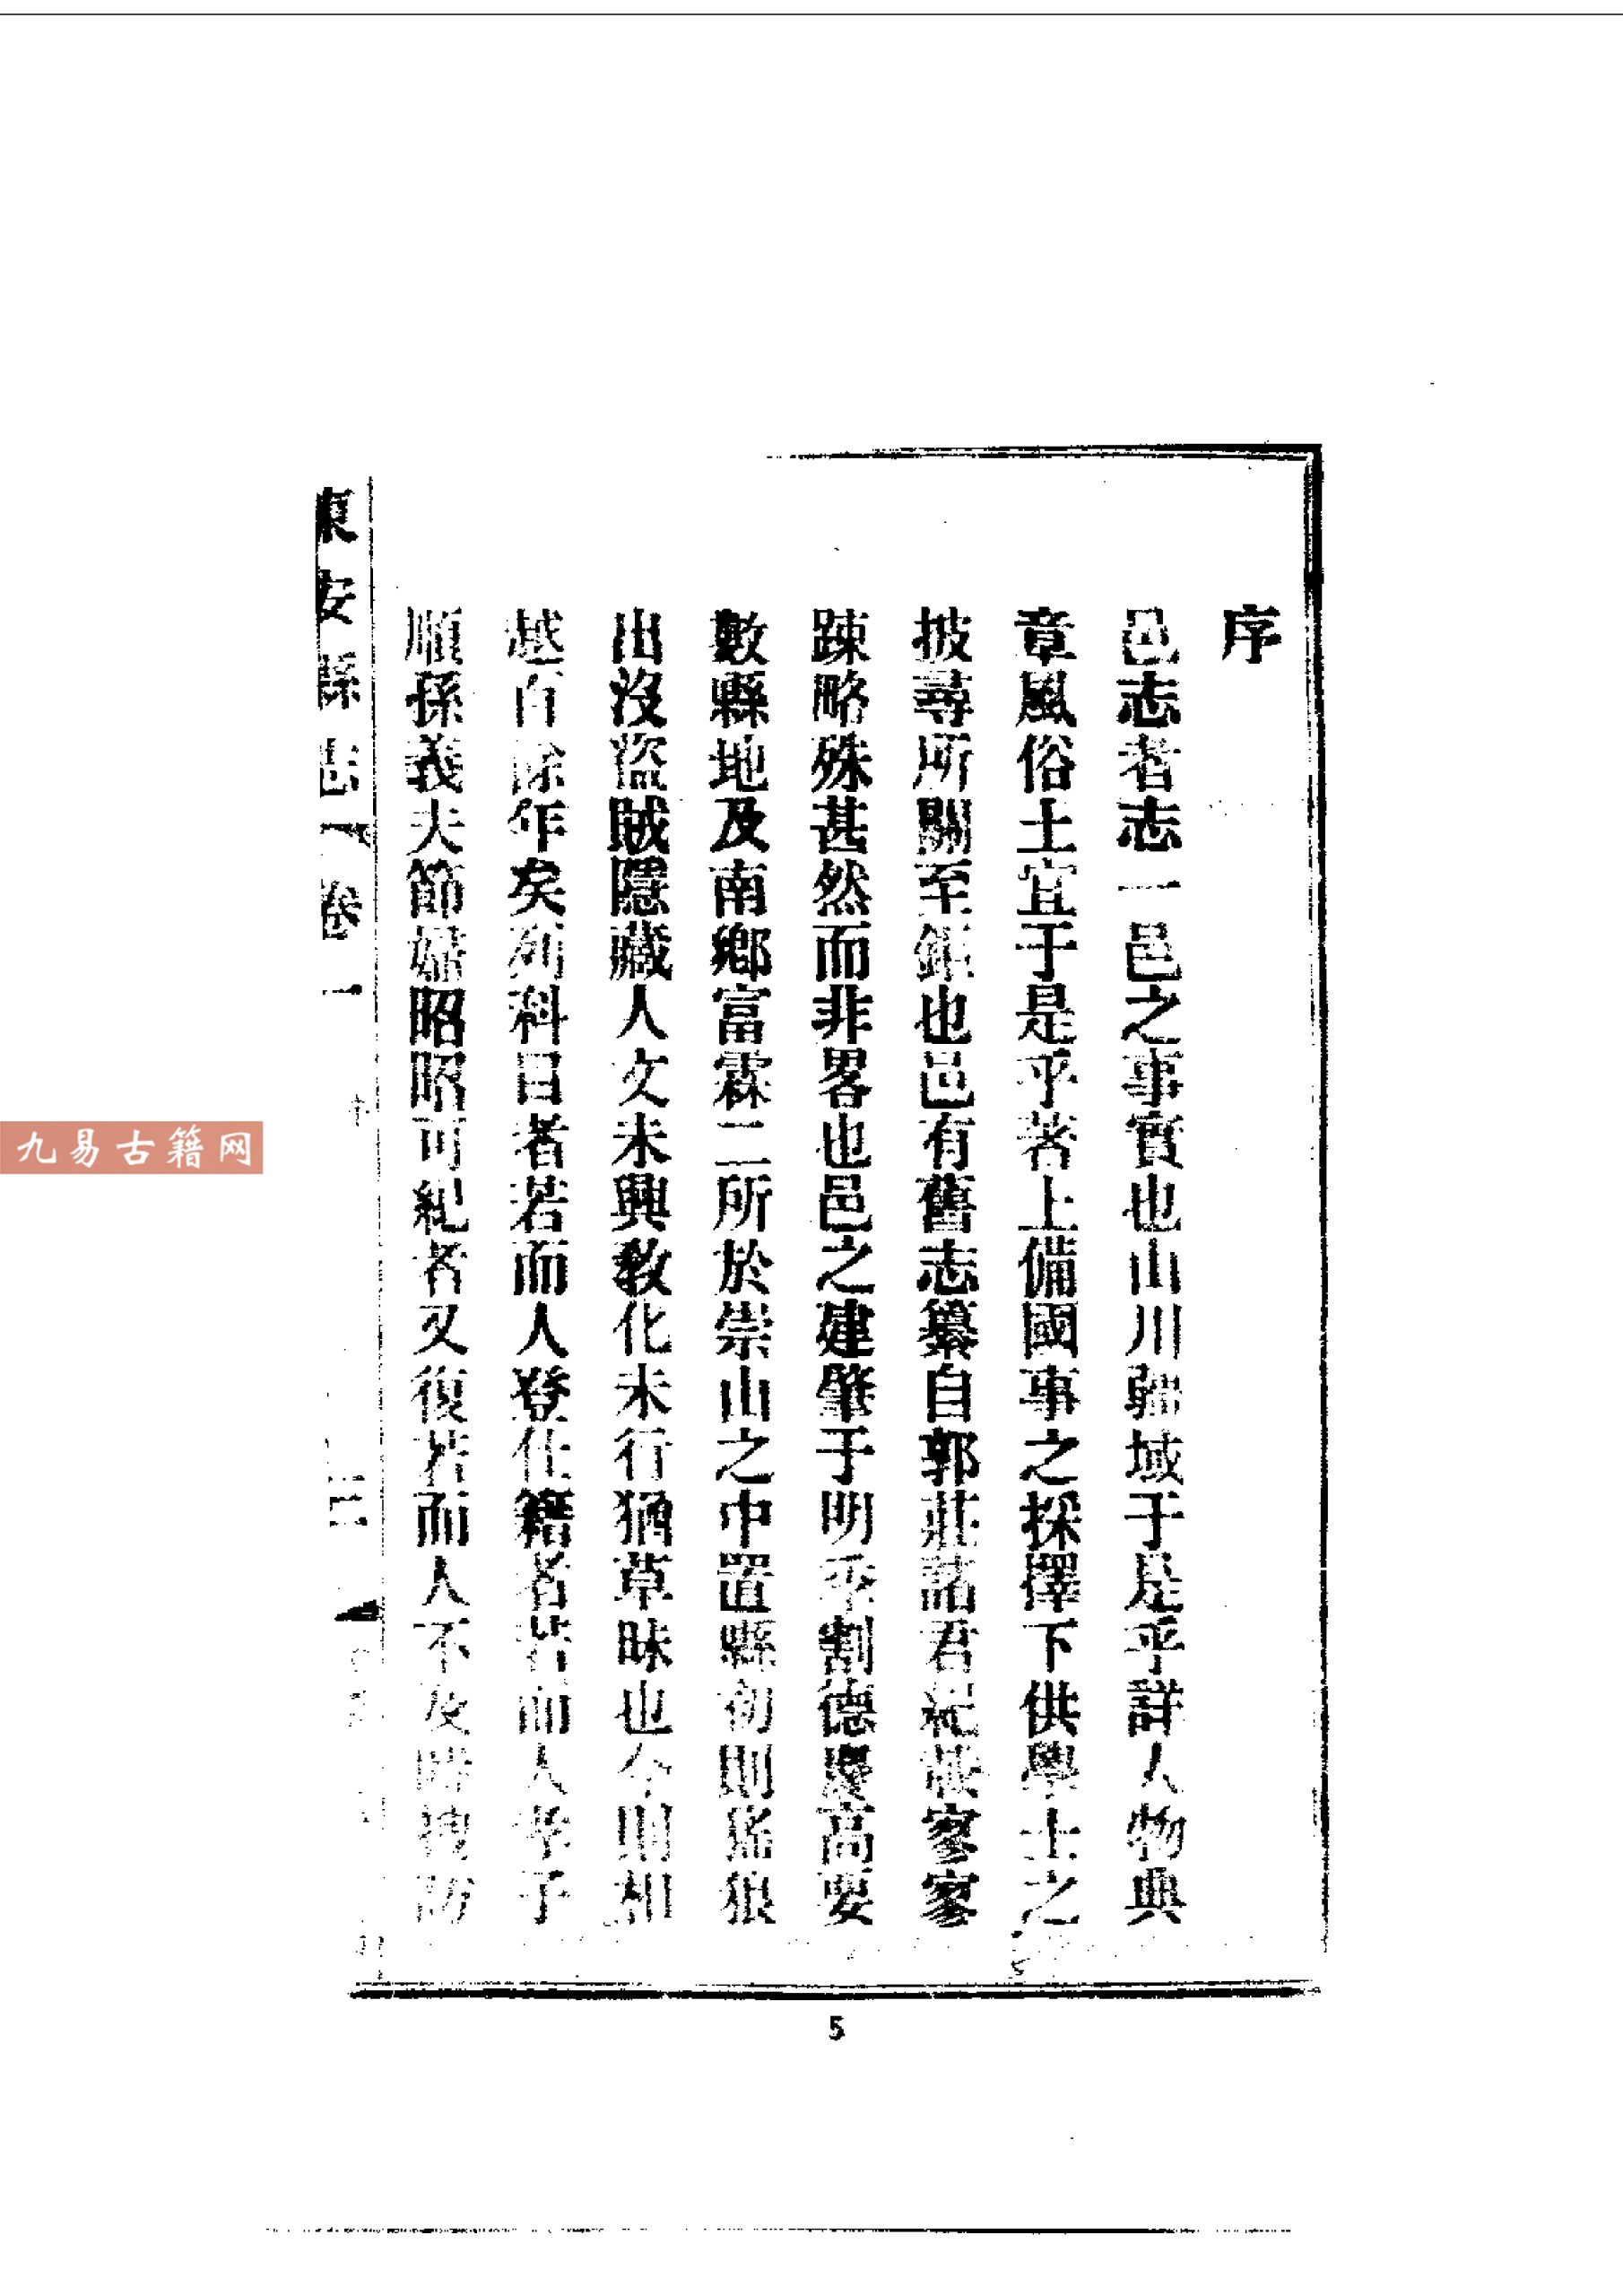 序
邑志者志一邑之事實也山川疆域于是乎詳人物典
章風俗土宜于是乎著上備國事之採擇下供學士之
披尋所關至鉅也邑有舊志纂自郭莊諸君紀載寥寥
踈略殊甚然而非畧也邑之建肇于明季割德慶高要
數縣地及南鄉富霖二所於崇山之中置縣初則猺狼
出沒盜賊隱藏人文未興教化未行猶草昧也今則相
越百餘年矣列科目者若而人登仕籍者若而人孝子
順孫義夫節婦昭昭可紀者又復若而人不及時搜訪
東安縣志 卷一
九易古籍网
5